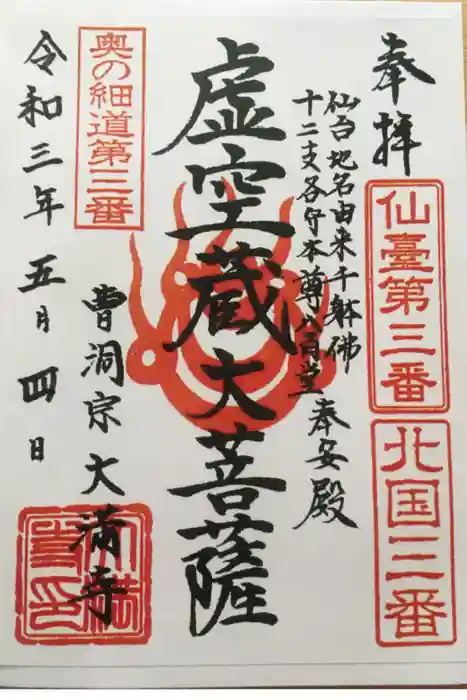 奉拝
仙臺第三番
北国三番
仙台地名由来千躰佛
十二支各守本尊八角堂奉安殿
虚空蔵大菩薩
奥の細道第三番
曹洞宗大満寺
令和三年五月四日